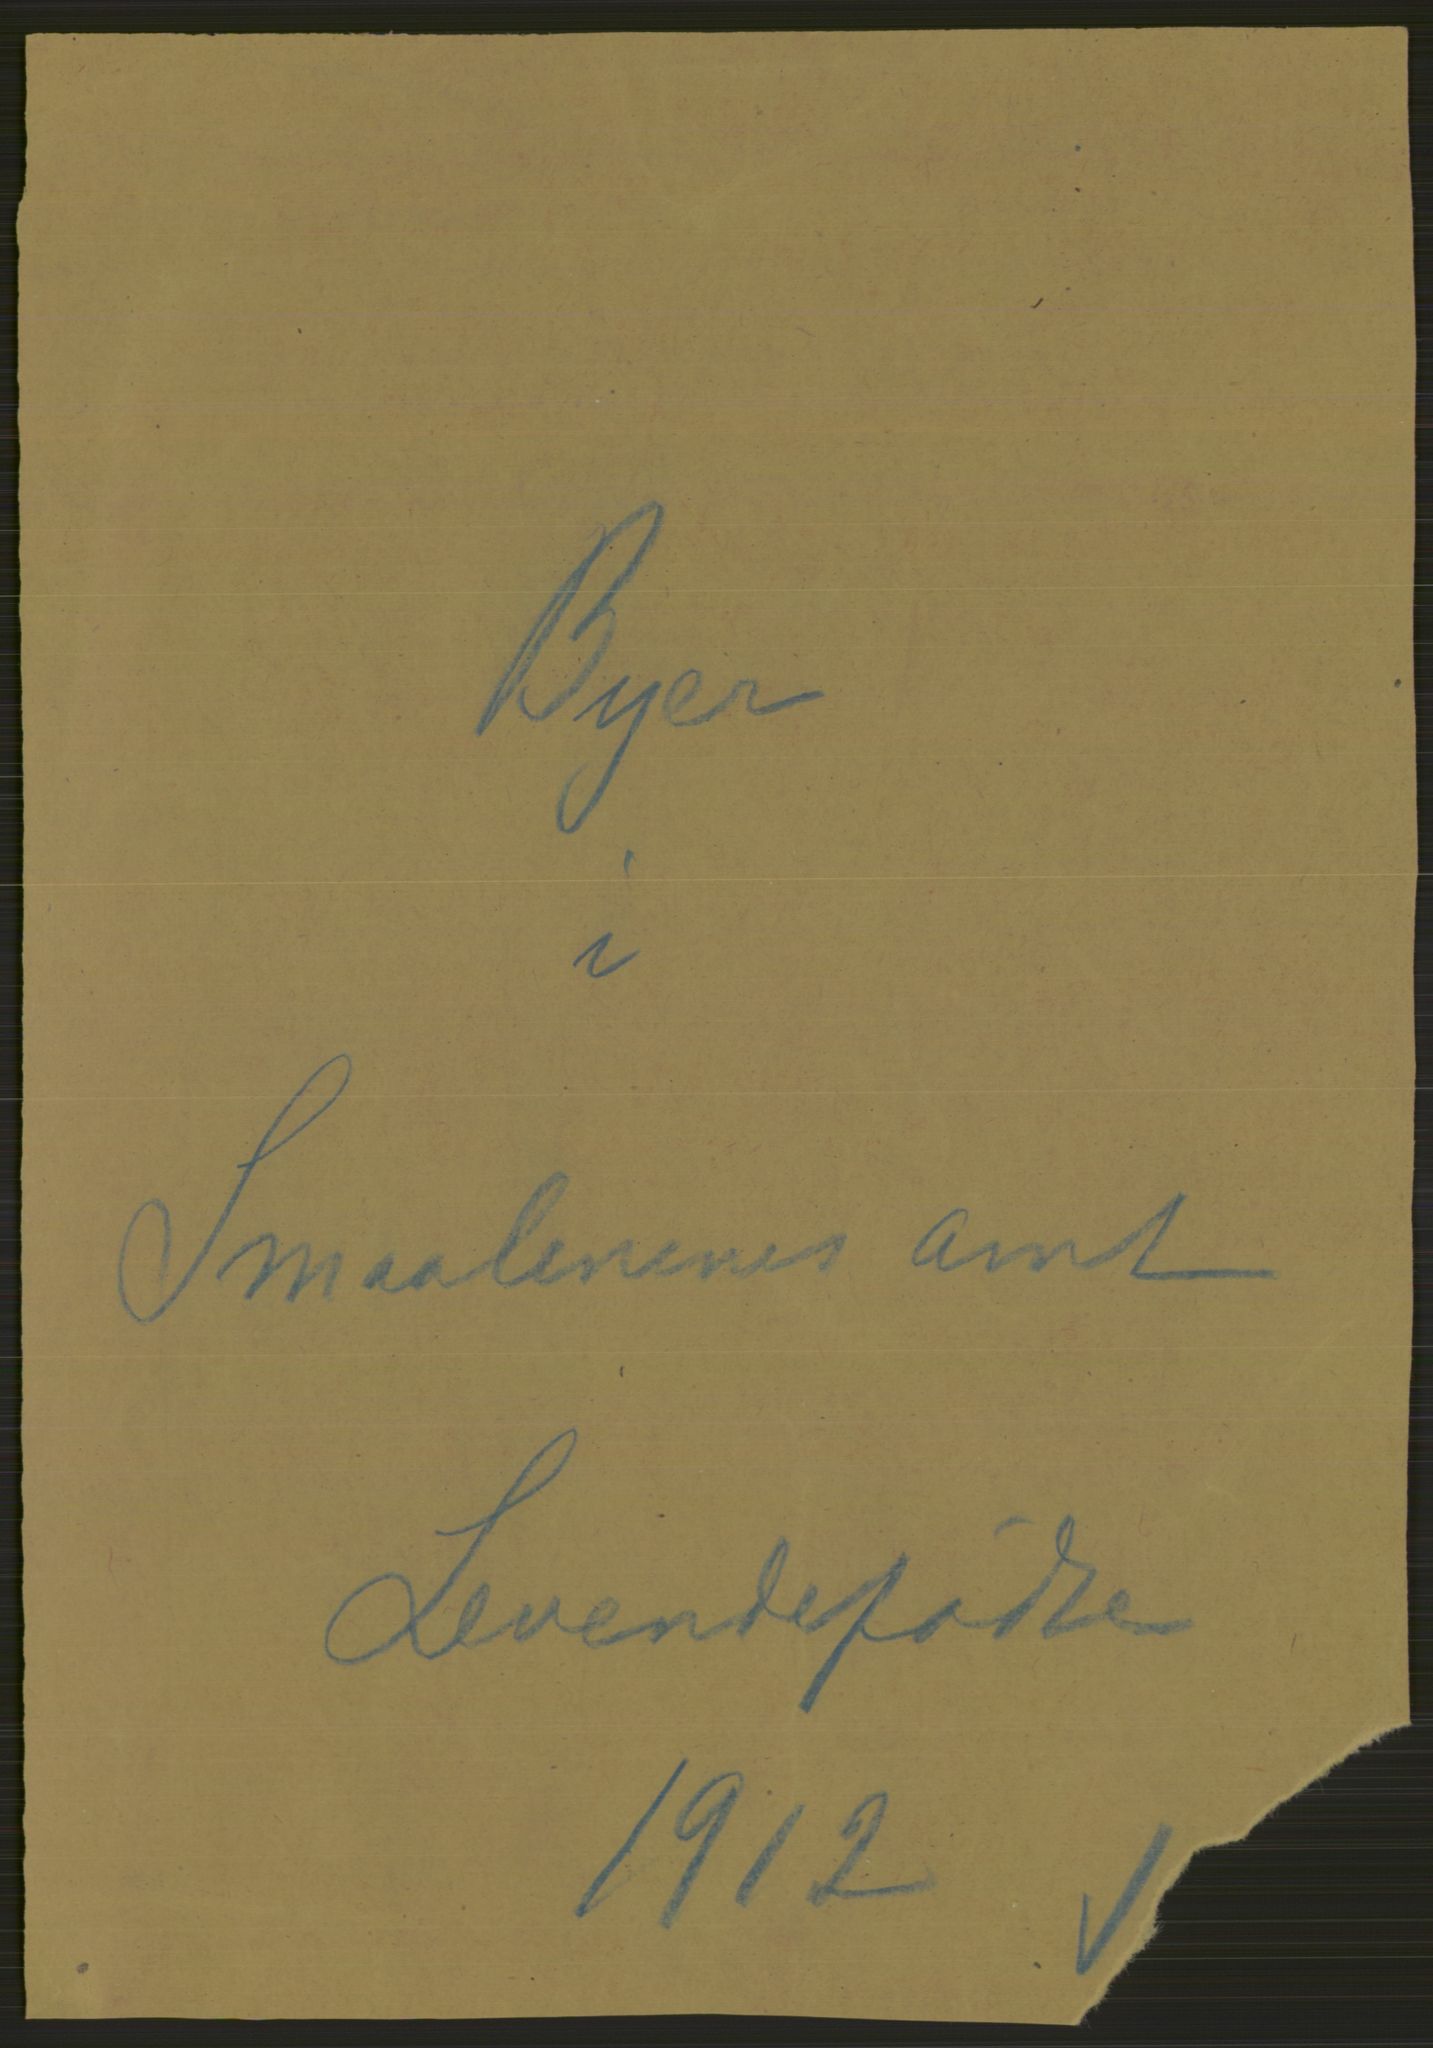 Byer
i
Smaalenenes amt
Levendefödte
1912 ✓